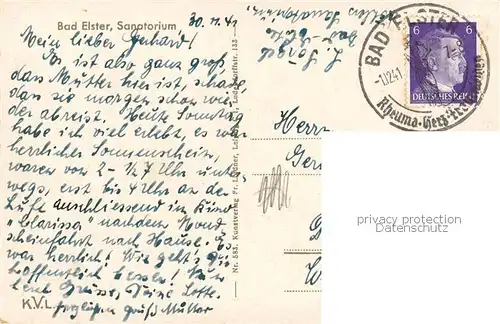 Bad Elster, Sanatorium
30.11.41
Mein lieber Gerhard!
Es ist also ganz groß
das Mutter hier ist, schade
das sie morgen schon wie-
der abreist. Heute Sonntag
habe ich viel erlebt, es war
herrlicher Sonnenschein,
waren von 2 - ½7 Uhr unter-
wegs, erst bis 4 Uhr an der
Luft anschliessend im Kino
"Clarissa" nachdem Mond-
scheinfahrt nach Hause. Es
war herrlich! Wie geht's Dir
hoffentlich besser!
liebe Grüsse, Deine Lotte.
K.V.L.
Gruß Mutter
Nr. 583. Kunstverlag Fr. Lindner,
Bad-Elster
Sanatorium
Herrn
Ger
BAD ELSTER
-1.12.41
Rheuma-Herz-
6 6
DEUTSCHES REICH
privacy protection
Datenschutz